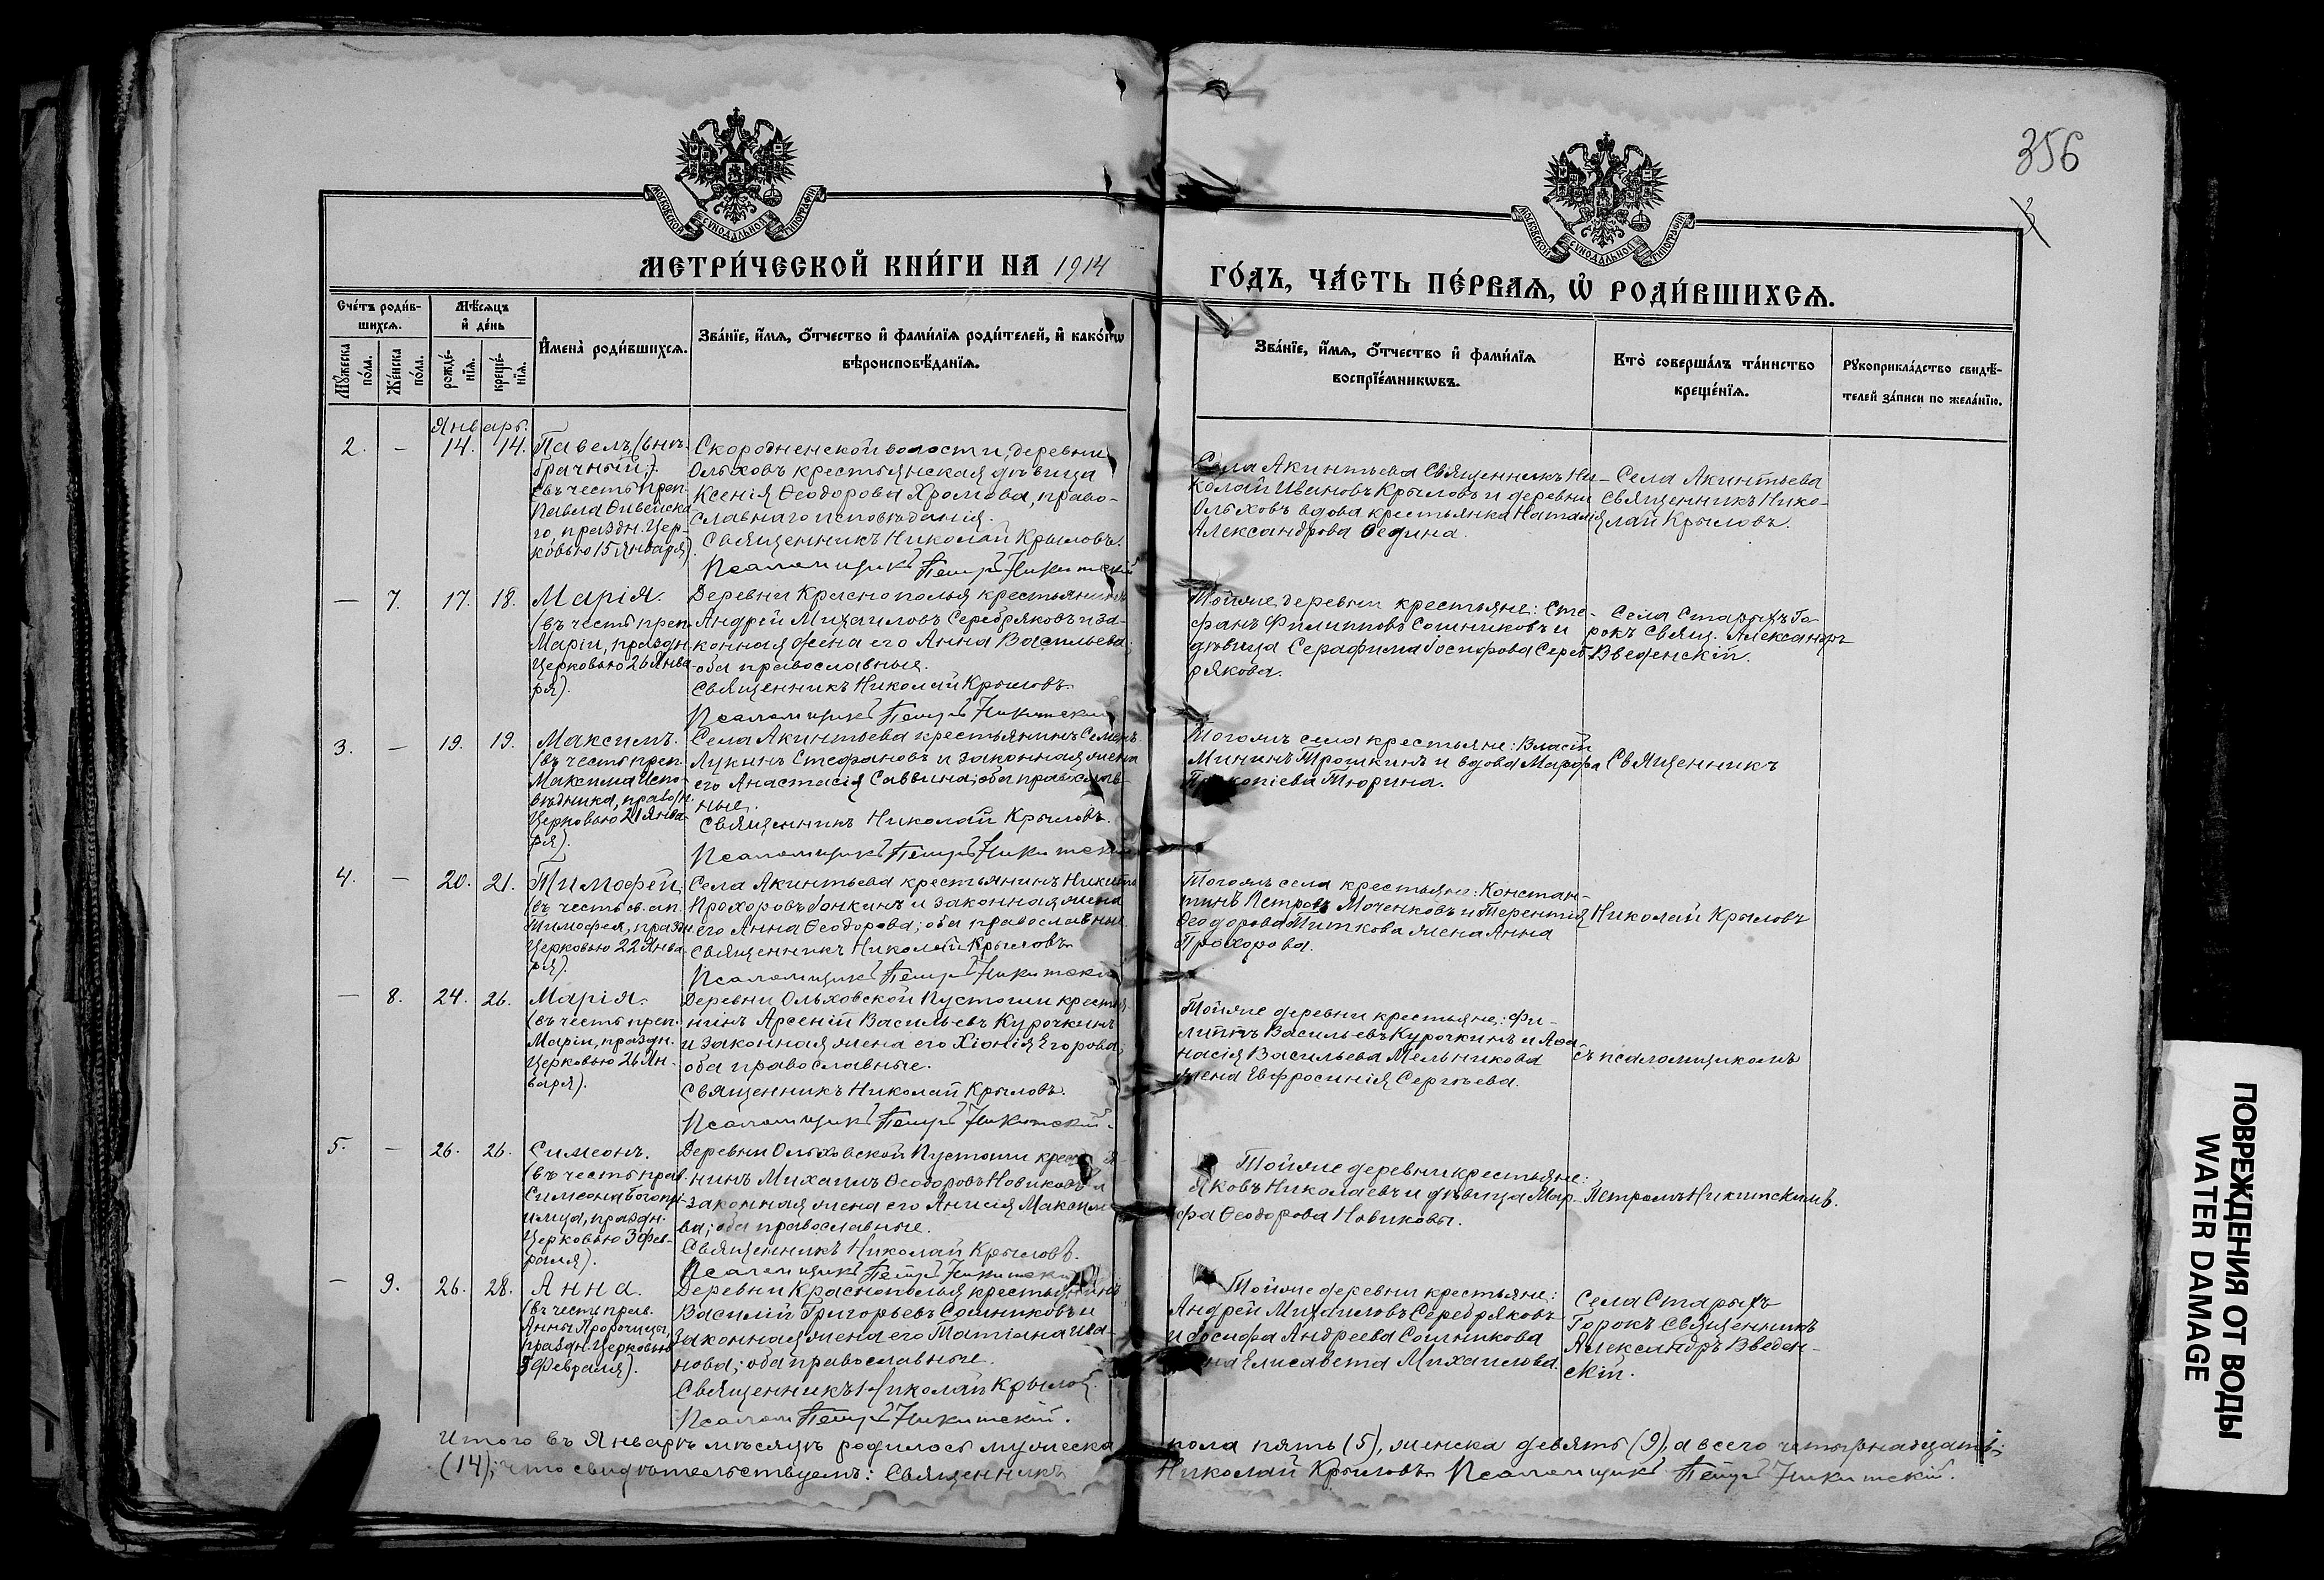 356
3
МОСКОВСКОЙ СѴНОДАЛЬНОЙ ТИПОГРАФІИ
МОСКОВСКОЙ СѴНОДАЛЬНОЙ ТИПОГРАФІИ
МЕТРИ́ЧЕСКОЙ КНИ́ГИ НА 1914
ГО́ДЪ, ЧА́СТЬ ПЕ́РВАѦ, Ѡ҆ РОДИ́ВШИХСѦ.
Сче́тъ роди́в-
шихсѧ.
Мꙋ́жеска по́ла.
Же́нска по́ла.
Мѣ́сѧцъ
и҆ де́нь
рожде́-
нїѧ.
креще́-
нїѧ.
И҆мена̀ роди́вшихсѧ.
Зва́нїе, и҆́мѧ, ѻ҆́тчество и҆ фами́лїѧ роди́телей, и҆ како́гѡ
вѣроисповѣ́данїѧ.
Зва́нїе, и҆́мѧ, ѻ҆́тчество и҆ фами́лїѧ
воспрїе́мникѡвъ.
Кто̀ соверша́лъ та́инство
креще́нїѧ.
Рꙋкоприкла́дство свидѣ́-
телей за́писи по жела́нїю.
Январь.
2. — 14. 14.
Павелъ, (внѣ-
брачный,)
(въ честь преп.
Павла Ѳивейска
го, праздн. Цер-
ковью 15 Января).
Скородненской волости, деревни
Ольховъ крестьянская дѣвица
Ксенія Ѳеодорова Хромова, право-
славнаго исповѣданія.
Священникъ Николай Крыловъ.
Псаломщикъ Петръ Никитскій
Села Акинтьева Священникъ Ни-
колай Ивановъ Крыловъ и деревни
Ольховъ вдова крестьянка Наталія
Александрова Ѳедина.
Села Акинтьева
Священникъ Нико-
лай Крыловъ.
— 7. 17. 18.
Марія.
(въ честь преп.
Маріи, праздн.
Церковью 26 Янва
ря).
Деревни Краснополья крестьянинъ
Андрей Михаиловъ Серебряковъ и за-
конная жена его Анна Васильева;
оба православные.
Священникъ Николай Крыловъ.
Псаломщикъ Петръ Никитскій
Тойже деревни крестьяне: Сте-
фанъ Филипповъ Сошниковъ и
дѣвица Серафима Іосифова Сереб-
рякова.
Села Старыхъ Го-
рокъ Свящ. Александръ
Введенскій.
3. — 19. 19.
Максимъ.
(въ честь преп.
Максима Испо-
вѣдника, праздн.
Церковью 21 Янва-
ря).
Села Акинтьева крестьянинъ Семенъ
Лукинъ Стефановъ и законная жена
его Анастасія Саввина; оба православ-
ные.
Священникъ Николай Крыловъ.
Псаломщикъ Петръ Никитскій
Тогожъ села крестьяне: Власій
Мининъ Трошкинъ и вдова Марфа
Прокопіева Тюрина.
Священникъ
4. — 20. 21.
Тимофей,
(въ честь св. ап.
Тимофея, праздн.
Церковью 22 Янва-
ря).
Села Акинтьева крестьянинъ Никита
Прохоровъ Гонкинъ и законная жена
его Анна Ѳеодорова; оба православные.
Священникъ Николай Крыловъ
Псаломщикъ Петръ Никитскій
Тогожъ села крестьяне: Констан-
тинъ Петровъ Моченковъ и Терентія
Ѳеодорова Титкова жена Анна
Прохорова.
Николай Крыловъ
— 8. 24. 26.
Марія.
(въ честь преп.
Маріи, праздн.
Церковью 26 Ян-
варя).
Деревни Ольховской Пустоши крестья-
нинъ Арсеній Васильевъ Курочкинъ
и законная жена его Хіонія Егорова,
оба православные.
Священникъ Николай Крыловъ.
Псаломщикъ Петръ Никитскій.
Тойже деревни крестьяне: Фи-
липпъ Васильевъ Курочкинъ и Аѳа-
насія Васильева Мельникова
жена Евфросинія Сергѣева.
съ псаломщикомъ
5. — 26. 26.
Симеонъ.
(въ честь прав.
Симеона Богопрі-
имца, праздн.
Церковью 3 Фев-
раля).
Деревни Ольховской Пустоши крестья-
нинъ Михаилъ Ѳеодоровъ Новиковъ и
законная жена его Анисія Максимо-
ва; оба православные.
Священникъ Николай Крыловъ.
Псаломщикъ Петръ Никитскій
Тойже деревни крестьяне:
Яковъ Николаевъ и дѣвица Мар-
фа Ѳеодорова Новиковы.
Петромъ Никитскимъ.
— 9. 26. 28.
Анна.
(въ честь прав.
Анны Пророчицы,
праздн. Церковью
3 Февраля).
Деревни Краснополья крестьянинъ
Василій Григорьевъ Сошниковъ и
законная жена его Татіана Ива-
нова; оба православные.
Священникъ Николай Крыловъ.
Псалом. Петръ Никитскій.
Тойже деревни крестьяне:
Андрей Михаиловъ Серебряковъ
и Іосифа Андреева Сошникова
жена Елисавета Михаилова.
Села Старыхъ
Горокъ Священникъ
Александръ Введен-
скій.
Итого въ Январѣ мѣсяцѣ родилось мужеска пола пять (5), женска девять (9), а всего четырнадцать
(14); что свидѣтельствуемъ: Священникъ Николай Крыловъ. Псаломщикъ Петръ Никитскій.
ПОВРЕЖДЕНИЯ ОТ ВОДЫ
WATER DAMAGE